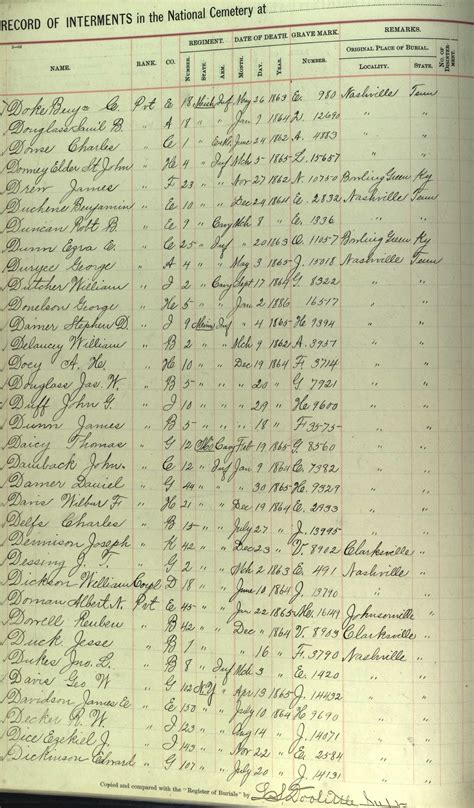 RECORD OF INTERMENTS in the National Cemetery at
NAME. RANK. CO. REGIMENT. DATE OF DEATH. GRAVE MARK. REMARKS.
NUMBER. STATE. ARM. MONTH. DAY. YEAR. NUMBER. ORIGINAL PLACE OF BURIAL. NO. OF
LOCALITY. STATE.
Doke Benj C Pvt E 18 Mich Inf May 26 1863 E. 980 Nashville Tenn
Douglass Saml B. " A 18 " " Jan 9 1864 12690 " "
Donse Charles " C 1 " June 24 1862 A. 4883 " "
Domey Elder St John " H 4 " Inf Mch 5 1865 15657 " "
Drew James " F 23 " " Nov 27 1862 N. 10750 Bowling Green Ky
Duchene Benjamin " E 10 " " Dec 24 1864 E. 2832 Nashville Tenn
Duncan Robt B. " 9 " Cavy Mch 8 " E. 1336 " "
Dunn Ezra C. " C 25 " Inf " 20 1863 11057 Bowling Green Ky
Duryee George " A 4 " " May 3 1865 J. Nashville Tenn
Dutcher William " I 2 " Cavy Sept 17 1864 G. 8322 " "
Donelson George " 5 " " Jan 2 1886 16517 " "
Damer Stephen D. " I 9 Inf " 4 1865 H 9394 " "
Delaucey William " B 2 " " Mch 9 1862 A. 3957 " "
Docy A. H. " H 10 " " Dec 19 1864 F. 3714 " "
Douglass Jas. W. " B 5 " " " 20 " G. 7921 " "
Duff John G. " I 10 " " " 29 " H 9600 " "
Dunn James " B 5 " " " 18 " F 3575 " "
Daicy Thomas " G 12 Cavy Feb 19 1865 G. 8560 " "
Damback John " C 12 " Inf Jan 9 1864 E. 7382 " "
Damer Daniel " G 44 " " " 30 1865 H. 9329 " "
Davis Wilbur F. " H 21 " " Dec 19 1864 E. 2933 " "
Delfs Charles " B 15 " " July 27 " J. 13995 " "
Dennison Joseph " K 42 " " Dec 23 " V. 8902 Clarksville "
Dessing J. T. " G 2 " " Mch 2 1863 E. 491 Nashville "
Dickson William Corpl D 18 " " June 10 1864 J. 13790 " "
Doman Albert N. Pvt E 45 " " Jan 22 1865 16149 Johnsonville "
Dorrell Reuben " B 42 " " Dec 1864 V. 8903 Clarksville "
Duck Jesse " B 1 " " " 16 " F. 3790 Nashville "
Dukes Jno. L. " B 8 " Inf Mch 3 " E. 1420 " "
Davis Geo W " G 112 N.Y. " Apr 13 1865 J. 14432 " "
Davidson James E " E 150 " " July 10 1864 H 9690 " "
Decker R. W. " I 123 " " Aug 14 " J. 14071 " "
Dice Ezekiel J. " I 143 " " Nov 22 " E. 2584 " "
Dickinson Edward " G 107 " " July 20 " J. 14131 " "
Copied and compared with the "Register of Burials" by